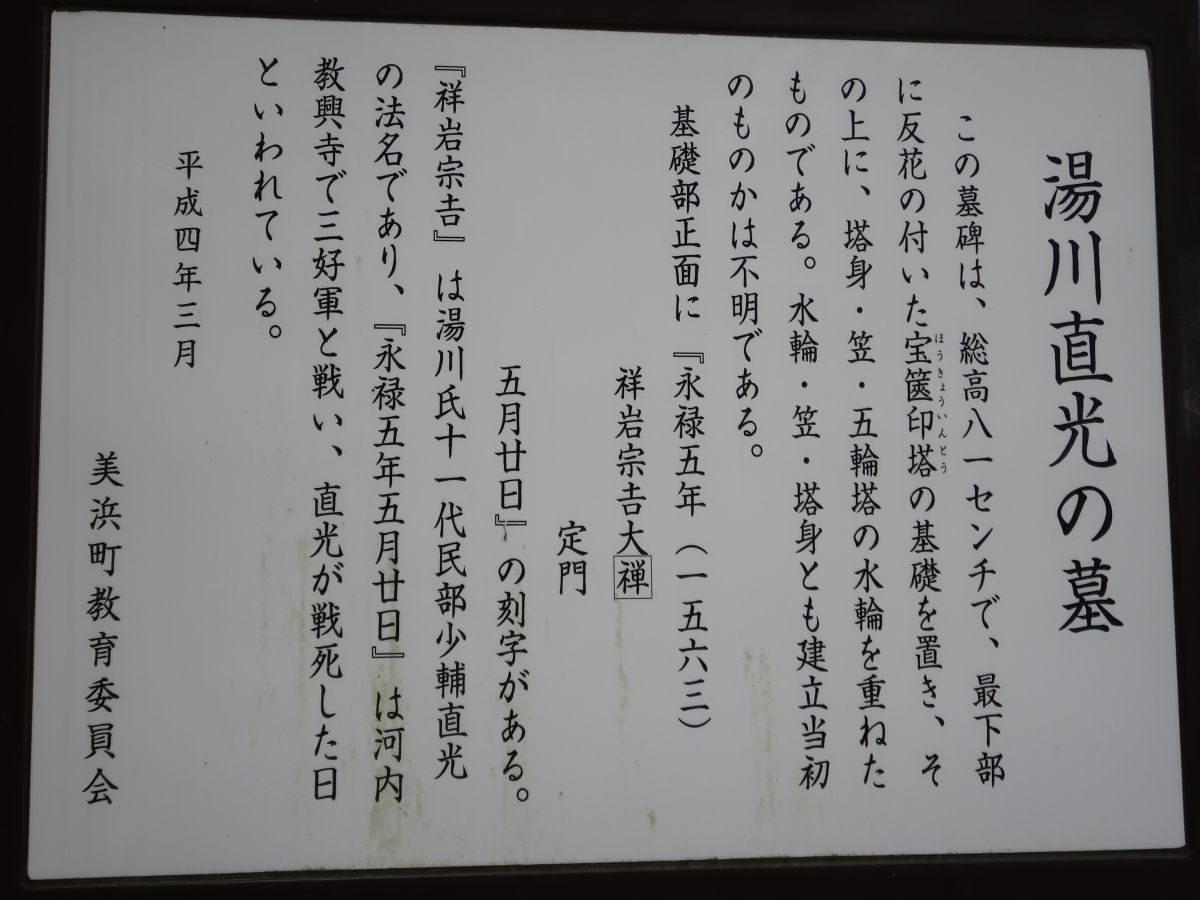 湯川直光の墓
この墓碑は、総高八一センチで、最下部
に反花の付いた宝篋印塔の基礎を置き、そ
ほうきょういんとう
の上に、塔身・笠・五輪塔の水輪を重ねた
ものである。水輪・笠・塔身とも建立当初
のものかは不明である。
基礎部正面に『永禄五年（一五六三）
祥岩宗吉大禅
定門
五月廿日』の刻字がある。
『祥岩宗吉』は湯川氏十一代民部少輔直光
の法名であり、『永禄五年五月廿日』は河内
教興寺で三好軍と戦い、直光が戦死した日
といわれている。
平成四年三月
美浜町教育委員会